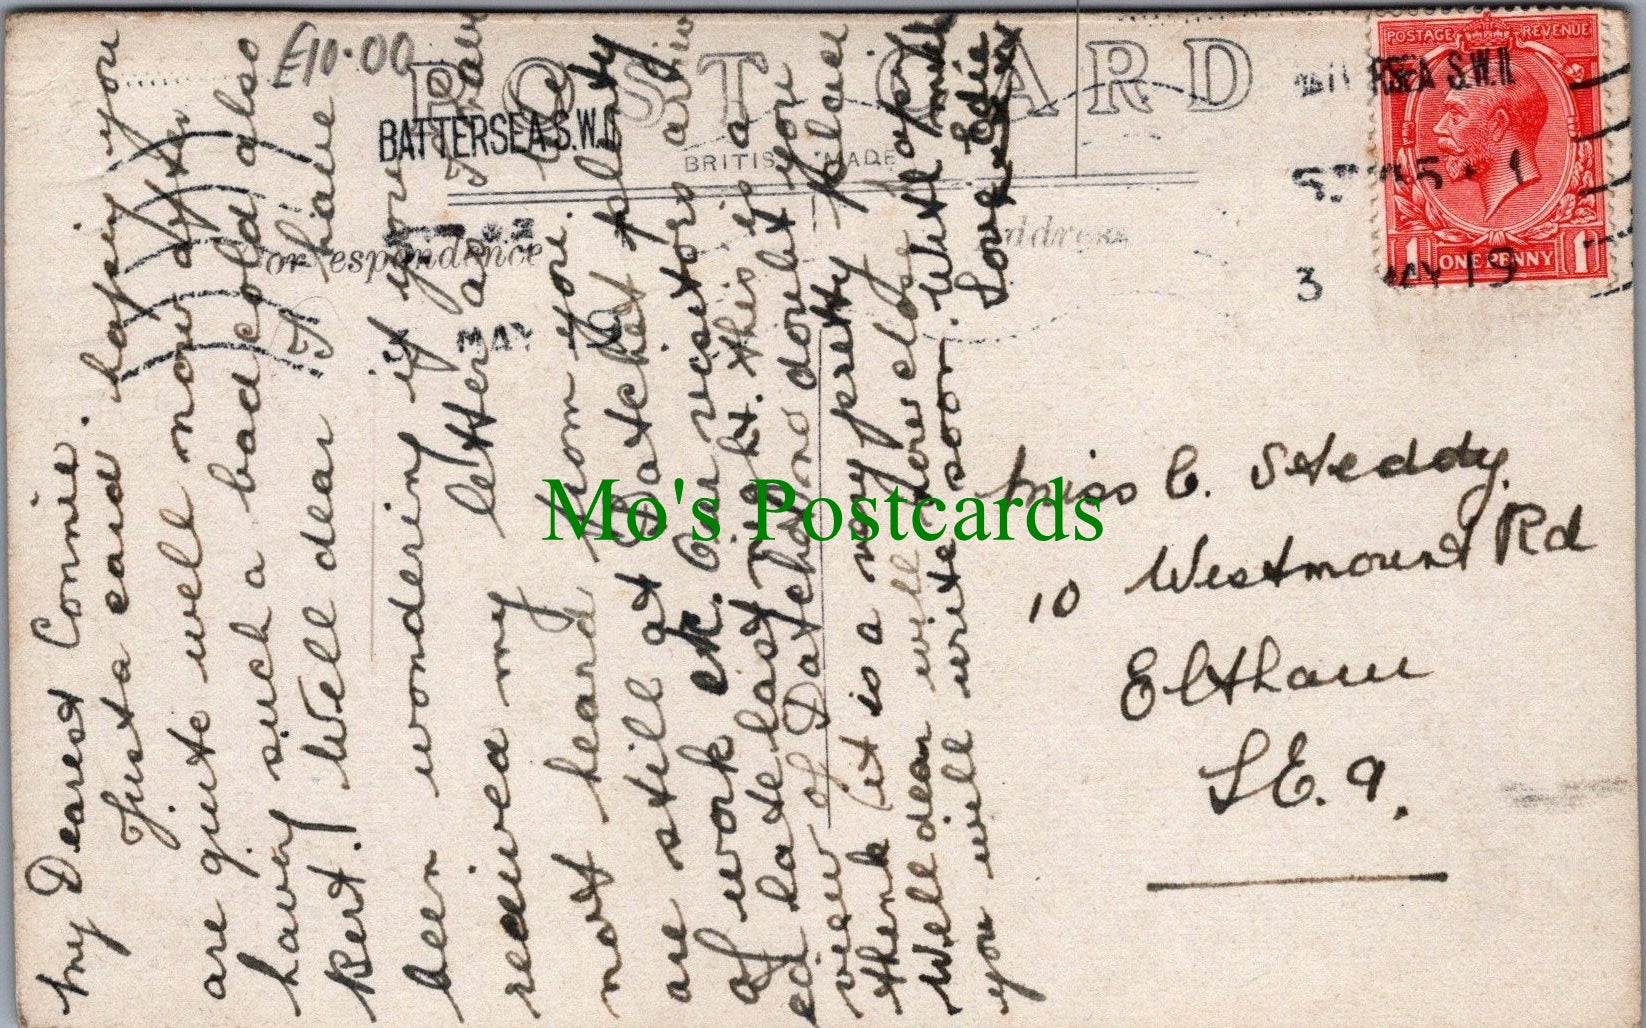 £10.00
POST CARD
BRITISH MADE
Correspondence
Address
BATTERSEA S.W.11
MAY 19
BATTERSEA S.W.11
5 - 1
3 MAY 19
POSTAGE REVENUE
1 ONE PENNY 1
My Dearest Connie.
Just a card. hoping you
are quite well now after
having such a bad cold also
Bert. Well dear I have
been wondering if you have
received my letter as I have
not heard from you. We
are still at Datchet plenty
of work etc. Our visitors arriv
ed late last night. this is a
view of Datchet no doubt you
think it is a very pretty place
Well dear will now close hoping
you will write soon. With much
Love Edie
xxxxx
Miss C. Steddy.
10 Westmount Rd
Eltham
S.E. 9.
Mo's Postcards